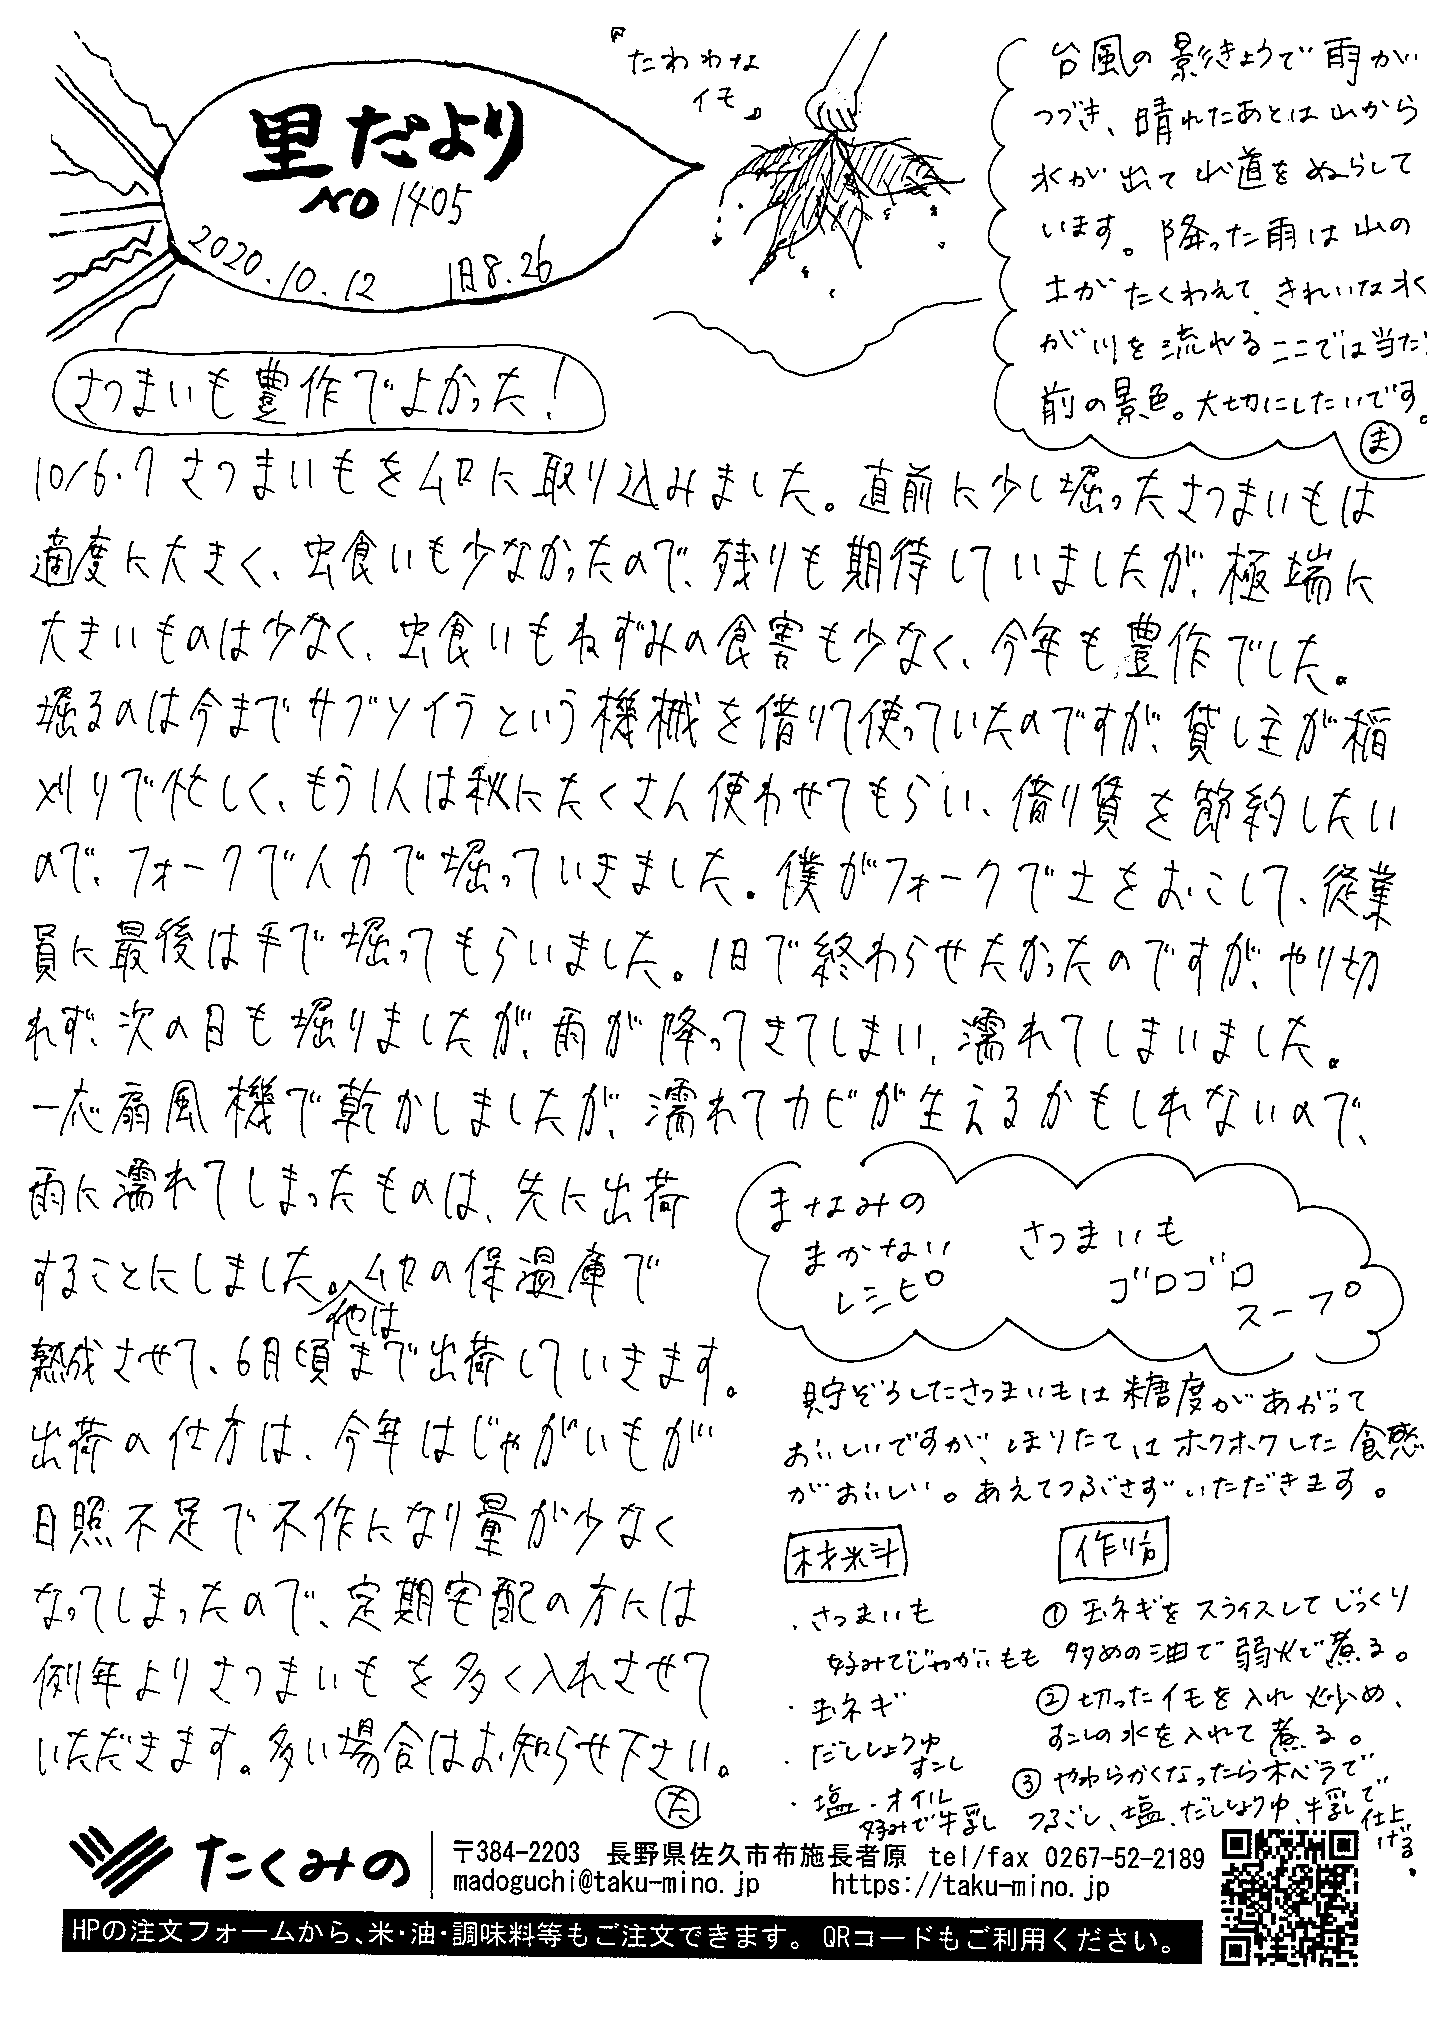 里だより
NO 1405
2020.10.12 旧8.26
『たわわな
イモ』
台風の影きょうで雨が
つづき、晴れたあとは山から
水が出て山道をぬらして
います。降った雨は山の
土がたくわえて、きれいな水
が川を流れるここでは当た
前の景色。大切にしたいです。
ま
さつまいも豊作でよかった!
10/6.7 さつまいもをムロに取り込みました。直前に少し堀ったさつまいもは
適度に大きく、虫食いも少なかったので、残りも期待していましたが、極端に
大きいものは少なく、虫食いもねずみの食害も少なく、今年も豊作でした。
堀るのは今までサブソイラという機械を借りて使っていたのですが、貸し主が稲
刈りで忙しく、もう1人は秋にたくさん使わせてもらい、借り賃を節約したい
ので、フォークで人力で堀っていきました。僕がフォークで土をおこして、従業
員に最後は手で堀ってもらいました。1日で終わらせたかったのですが、やり切
れず、次の日も堀りましたが、雨が降ってきてしまい、濡れてしまいました。
一応扇風機で乾かしましたが、濡れてカビが生えるかもしれないので、
雨に濡れてしまったものは、先に出荷
することにしました。他はムロの保温庫で
熟成させて、6月頃まで出荷していきます。
出荷の仕方は、今年はじゃがいもが
日照不足で不作になり量が少なく
なってしまったので、定期宅配の方には
例年よりさつまいもを多く入れさせて
いただきます。多い場合はお知らせ下さい。
た
まなみの
まかない
レシピ
さつまいも
ゴロゴロ
スープ
貯ぞうしたさつまいもは糖度があがって
おいしいですが、ほりたてはホクホクした食感
がおいしい。あえてつぶさずいただきます。
材料
・さつまいも
好みでじゃがいもも
・玉ネギ
・だししょうゆ
すこし
・塩・オイル
好みで牛乳
作り方
①玉ネギをスライスしてじっくり
多めの油で弱火で煮る。
②切ったイモを入れ炒め、
すこしの水を入れて煮る。
③やわらかくなったら木ベラで
つぶし、塩、だししょうゆ、牛乳で仕上
げる。
たくみの
〒384-2203 長野県佐久市布施長者原 tel/fax 0267-52-2189
madoguchi@taku-mino.jp https://taku-mino.jp
HPの注文フォームから、米・油・調味料等もご注文できます。QRコードもご利用ください。